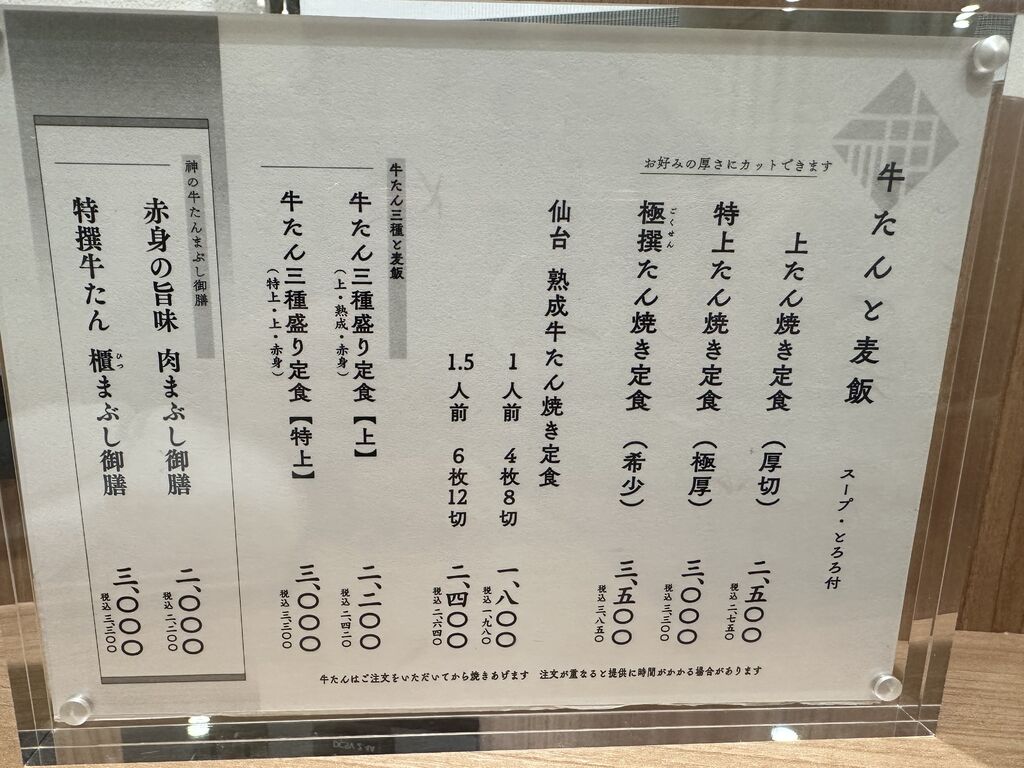 牛たんと麦飯
スープ・とろろ付
お好みの厚さにカットできます
上たん焼き定食（厚切）
二、五〇〇
税込 二、七五〇
特上たん焼き定食（極厚）
三、〇〇〇
税込 三、三〇〇
ごくせん
極撰たん焼き定食（希少）
三、五〇〇
税込 三、八五〇
仙台 熟成牛たん焼き定食
1人前 4枚8切
一、八〇〇
税込 一、九八〇
1.5人前 6枚12切
二、四〇〇
税込 二、六四〇
牛たん三種と麦飯
牛たん三種盛り定食【上】
（上・熟成・赤身）
二、二〇〇
税込 二、四二〇
牛たん三種盛り定食【特上】
（特上・上・赤身）
三、〇〇〇
税込 三、三〇〇
神の牛たんまぶし御膳
赤身の旨味 肉まぶし御膳
二、〇〇〇
税込 二、二〇〇
特撰牛たん 櫃まぶし御膳
ひつ
三、〇〇〇
税込 三、三〇〇
牛たんはご注文をいただいてから焼きあげます 注文が重なると提供に時間がかかる場合があります